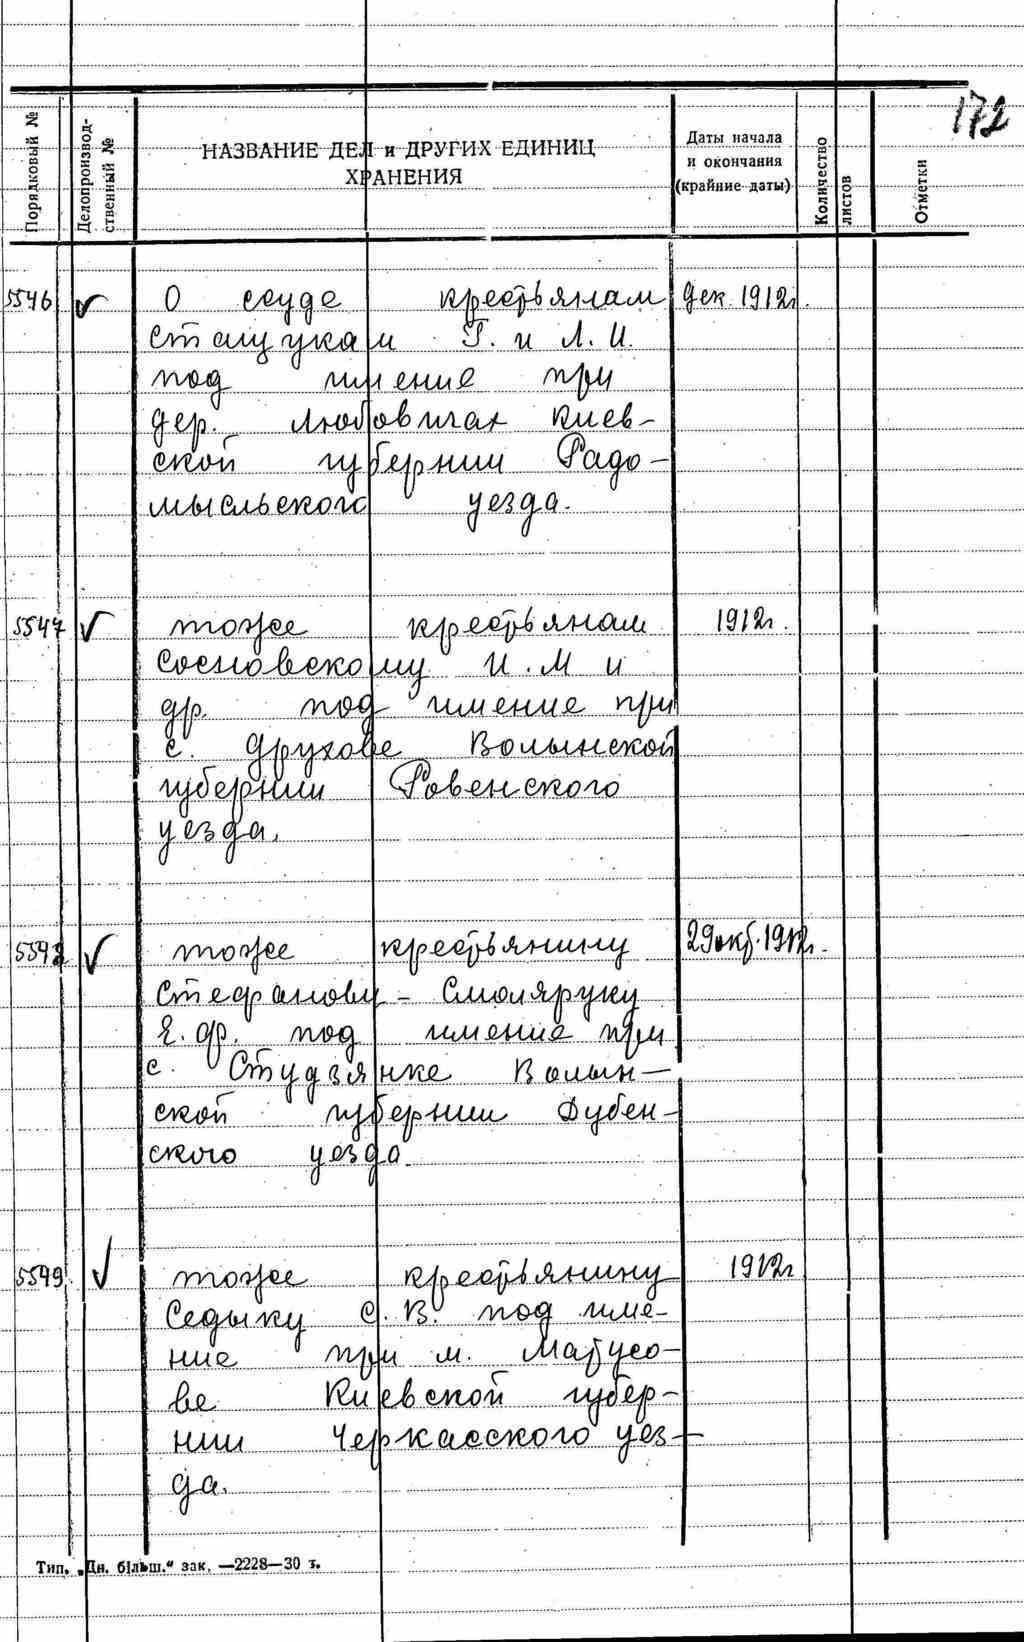 172
Порядковый №
Делопроизвод-
ственный №
НАЗВАНИЕ ДЕЛ и ДРУГИХ ЕДИНИЦ
ХРАНЕНИЯ
Даты начала
и окончания
(крайние даты)
Количество
листов
Отметки
5546 О ссуде крестьянам дек. 1912г.
Сташукам Г. и Л. И.
под имение при
дер. Любовичах Киев-
ской губернии Радо-
мысльского уезда.
5547 тоже крестьянам 1912г.
Сосновскому И. М и
др. под имение при
с. Друхове Волынской
губернии Ровенского
уезда.
5548 тоже крестьянину 29 окб. 1912г.
Стефанову - Смоляруку
Е. Ф. под имение при
с. Студзянке Волын-
ской губернии Дубен-
ского уезда.
5549 тоже крестьянину 1912г
Седыку С. В. под име-
ние при м. Матусо-
ве Киевской губер-
нии Черкасского уез-
да.
Тип. „Дн. більш." зак. —2228—30 т.